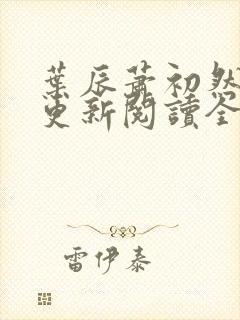 葉辰蕭初然
更新閱讀全
雷伊泰